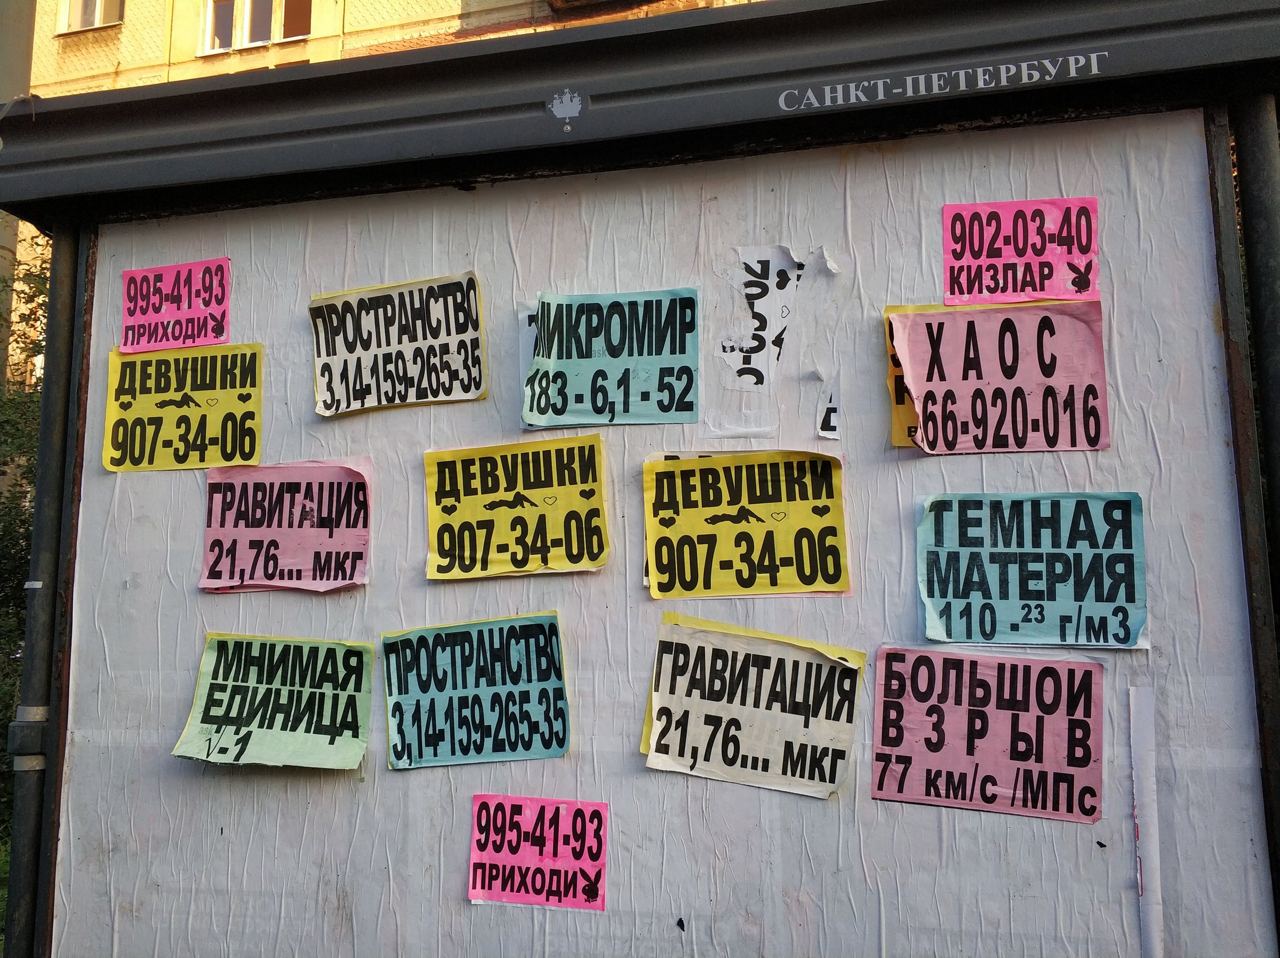 САНКТ-ПЕТЕРБУРГ
902-03-40
КИЗЛАР
995-41-93
ПРИХОДИ
ПРОСТРАНСТВО
3,14-159-265-35
МИКРОМИР
183-6,1-52
ХАОС
66-920-016
ДЕВУШКИ
907-34-06
ГРАВИТАЦИЯ
21,76... мкг
ДЕВУШКИ
907-34-06
ДЕВУШКИ
907-34-06
ТЕМНАЯ
МАТЕРИЯ
110-²³ г/м3
МНИМАЯ
ЕДИНИЦА
√-1
ПРОСТРАНСТВО
3,14-159-265-35
ГРАВИТАЦИЯ
21,76... мкг
БОЛЬШОИ
ВЗРЫВ
77 км/с /МПс
995-41-93
ПРИХОДИ